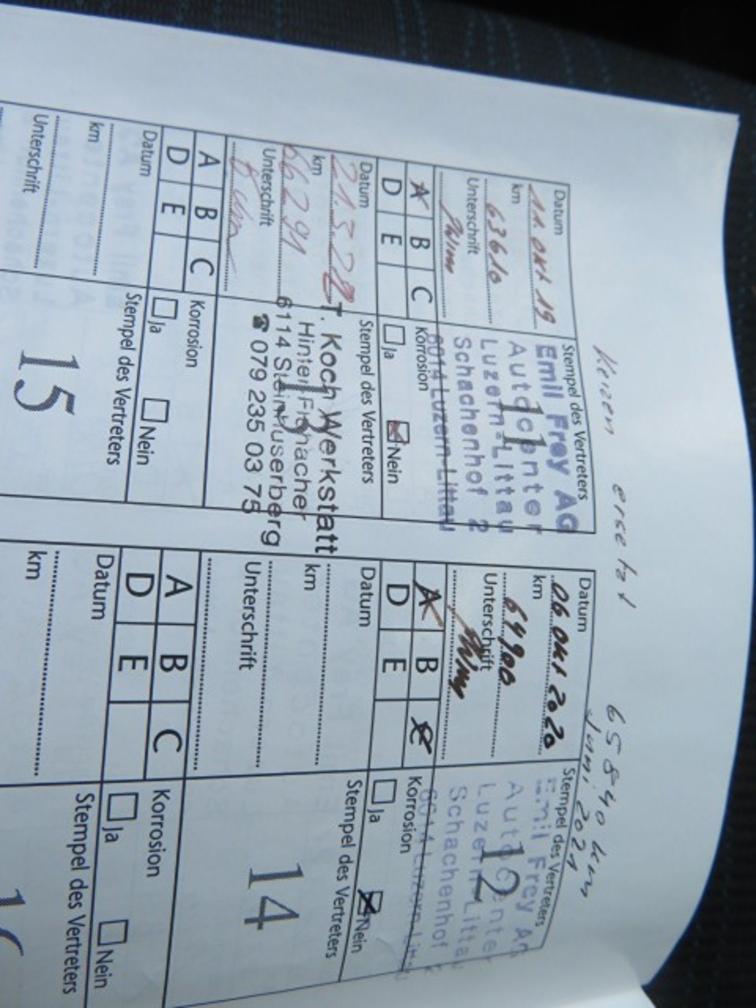 Kerzen ersetzt 65840 km
Juni 2021
Datum
11. Okt 19
km
63610
Unterschrift
A B C
D E
Stempel des Vertreters
11
Emil Frey AG
Autocenter
Luzern-Littau
Schachenhof 2
6014 Luzern-Littau
Korrosion
Ja Nein
Datum
06 Okt 2020
km
64900
Unterschrift
A B C
D E
Stempel des Vertreters
12
Emil Frey AG
Autocenter
Luzern-Littau
Schachenhof 2
6014 Luzern-Littau
Korrosion
Ja Nein
Datum
km
66291
Unterschrift
A B C
D E
Stempel des Vertreters
13
T. Koch Werkstatt
6114 Steinhuserberg
☎ 079 235 03 75
Korrosion
Ja Nein
Datum
km
Unterschrift
A B C
D E
Stempel des Vertreters
14
Korrosion
Ja Nein
Datum
km
Unterschrift
Stempel des Vertreters
15
Datum
km
Stempel des Vertreters